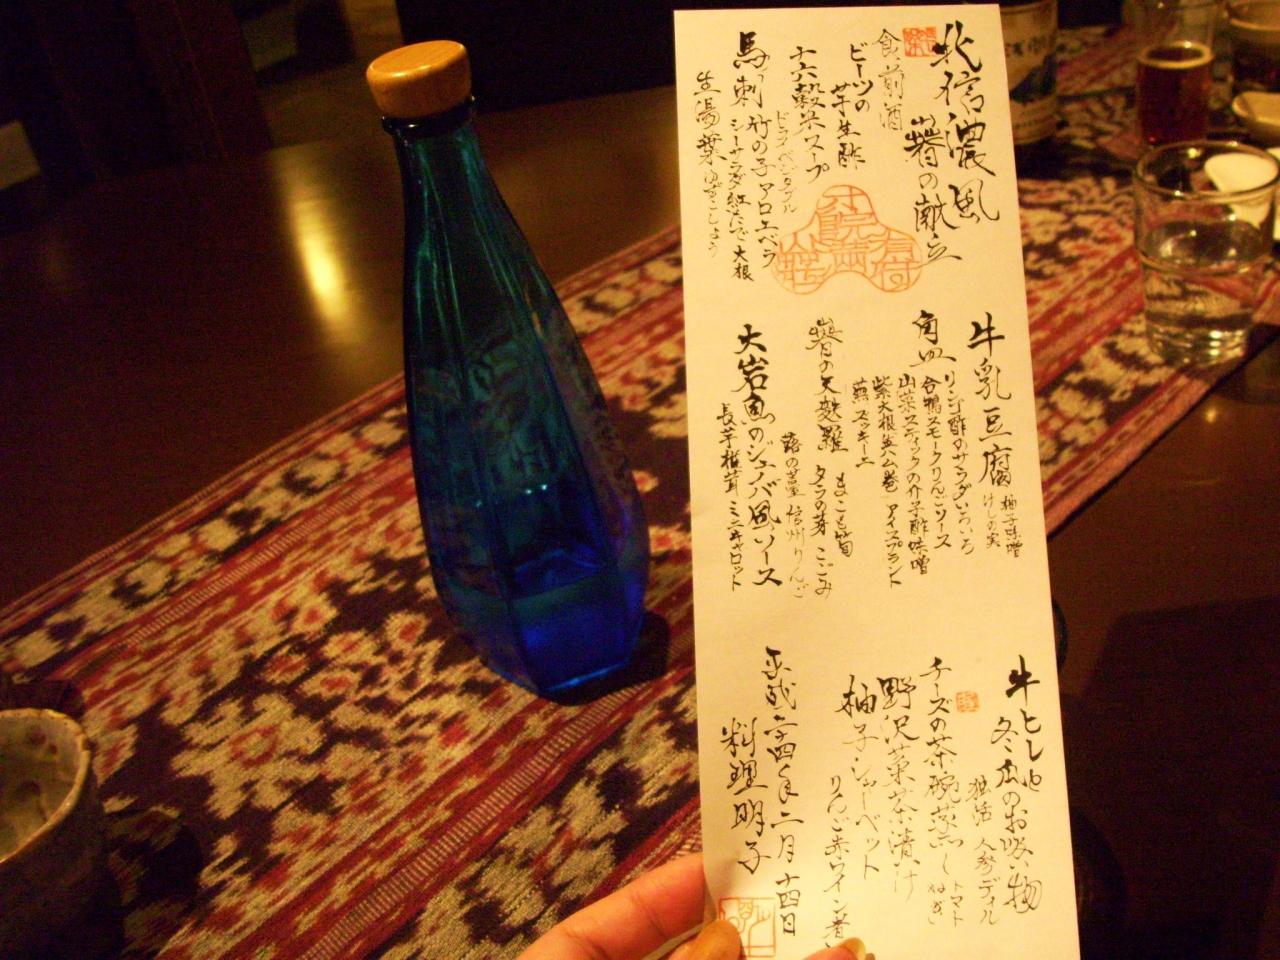 北信濃風
蕾の献立
食前酒
ビーツの
芋生酢
十六穀米スープ
ドライベジタブル
馬刺 竹の子 アロエベラ
シーサラダ 紅たで 大根
生湯葉 ゆずこしょう
牛乳豆腐 柚子味噌
けしの実
角皿 リンゴ酢のサラダいろいろ
合鴨スモークりんごソース
山菜スティックの介子酢味噌
紫大根生ハム巻 アイスプラント
蕪 ズッキーニ
蕾の天麩羅 まこも筍
タラの芽 こごみ
蕗の薹 信州りんご
大岩魚のジェノバ風ソース
長芋 椎茸 ミニキャロット
牛ヒレと
冬瓜のお吸い物
独活 人参 ディル
チーズの茶碗蒸し トマト
ねぎ
野沢菜茶漬け
柚子シャーベット
りんご赤ワイン煮
平成二十四年二月十四日
料理 明子